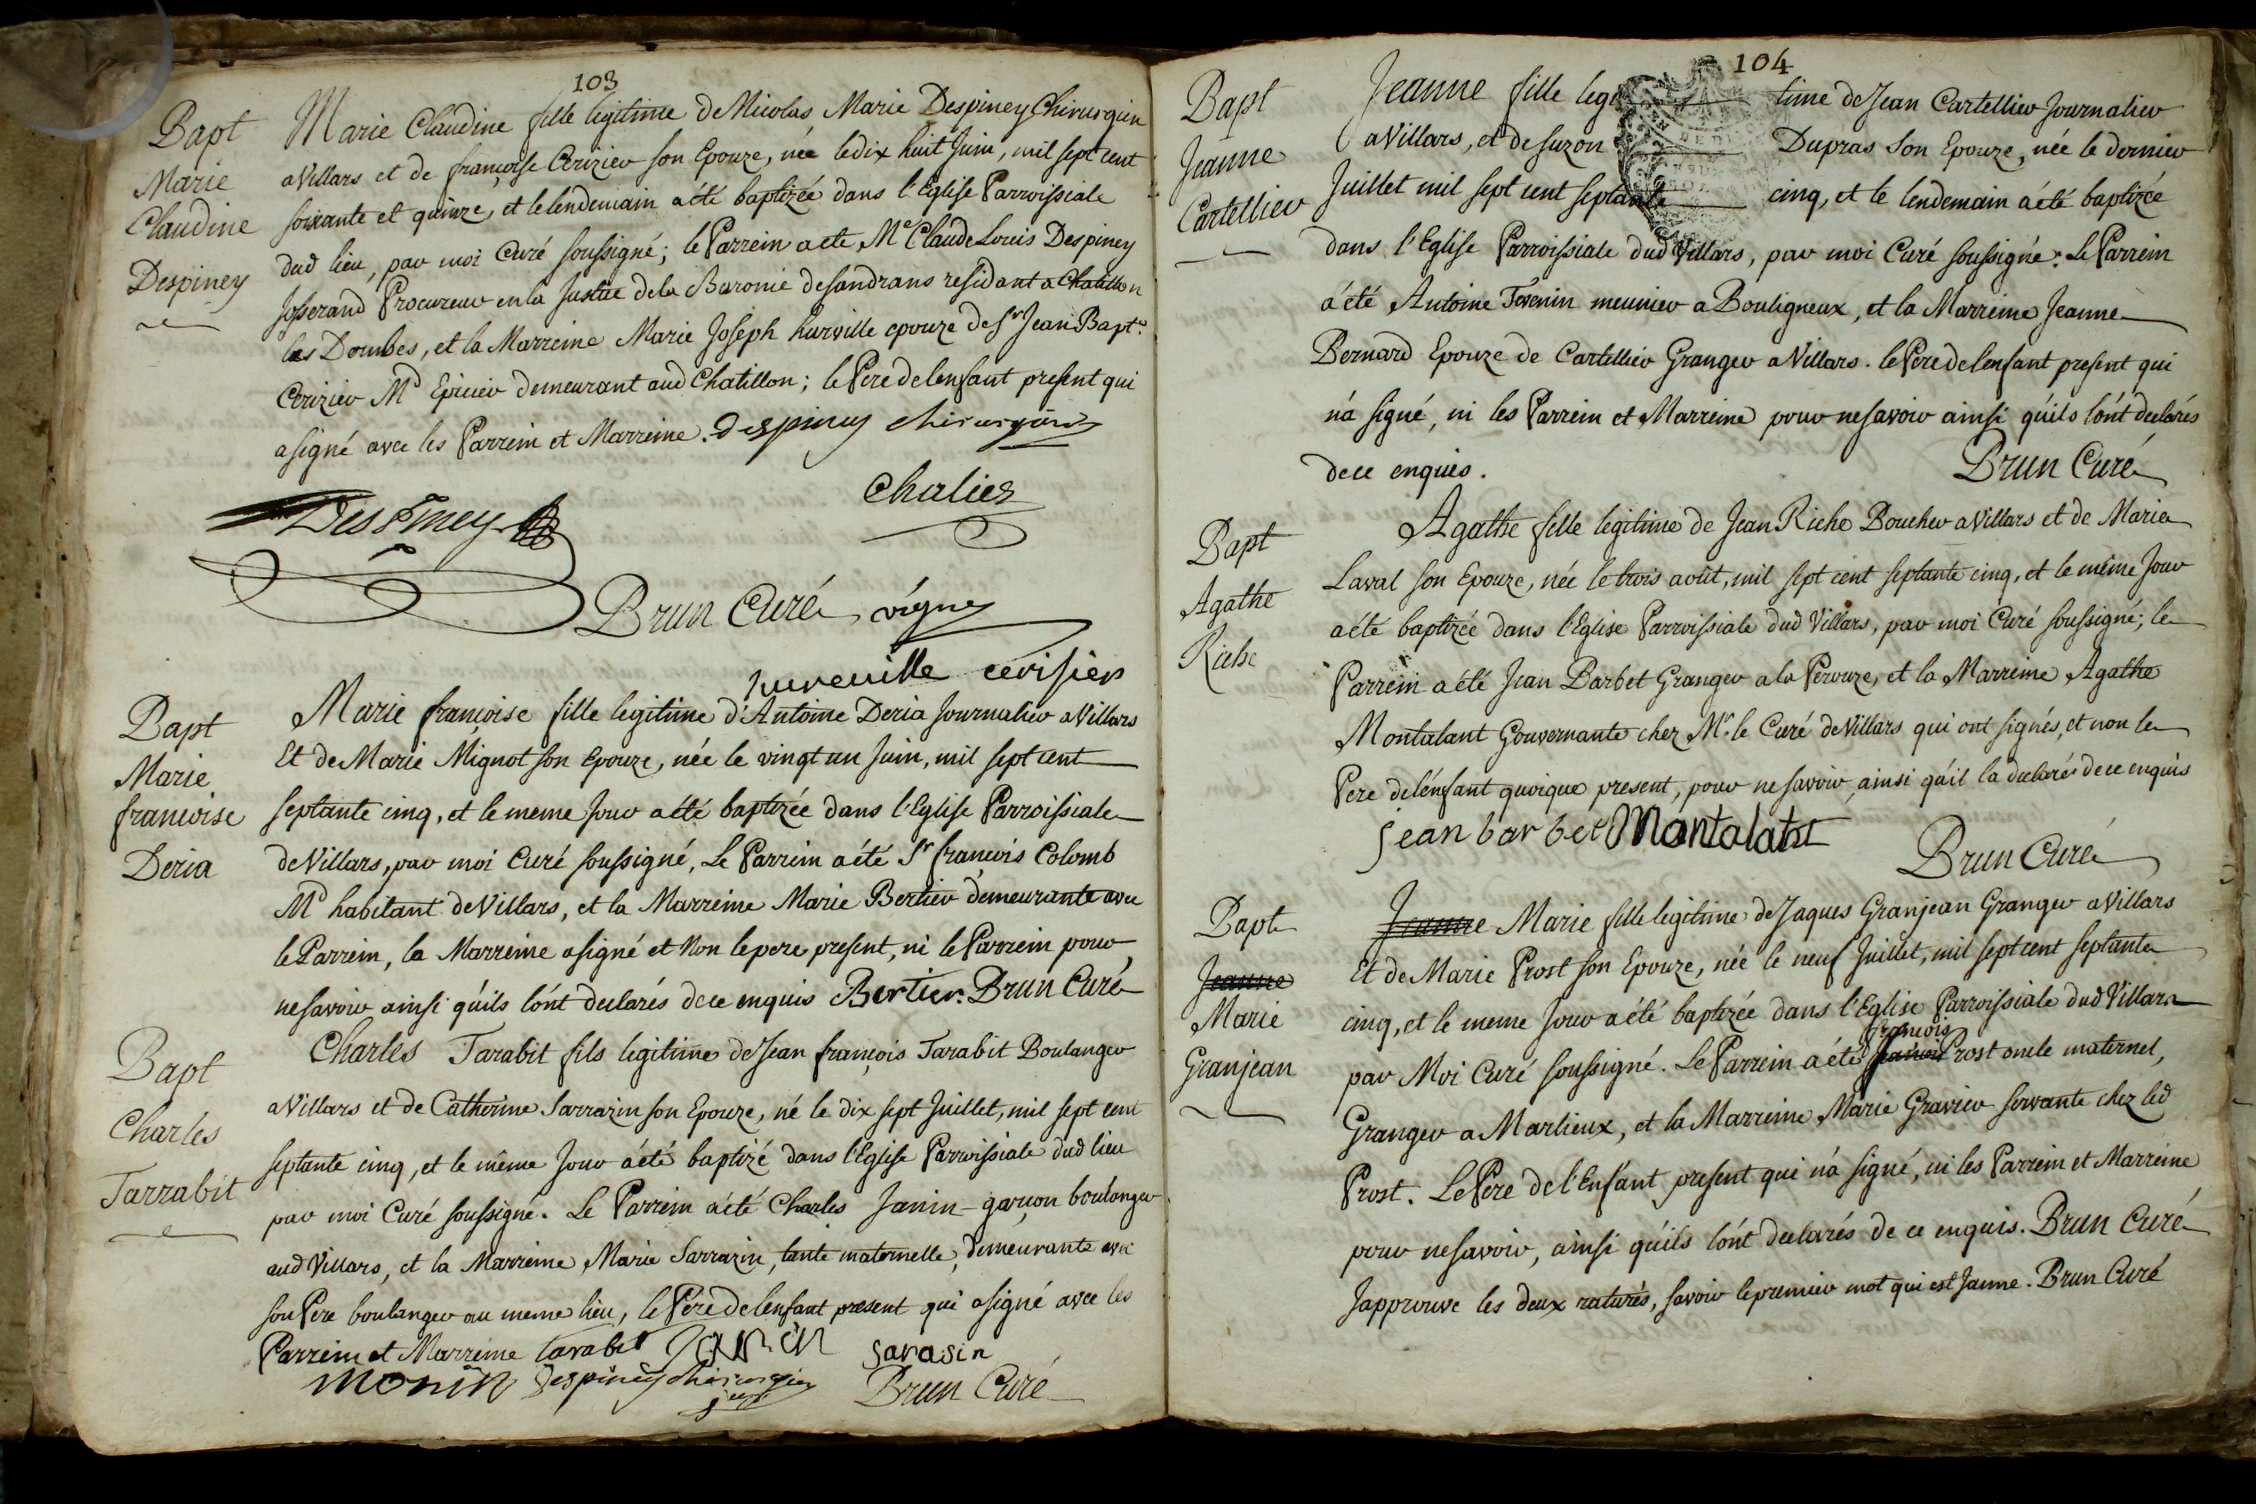 103
Bapt
Marie
Claudine
Despiney
Marie Claudine fille legitime de Nicolas Marie Despiney Chirurgien
a Villars et de françoise Cerizier son Epouze, née le dix huit Juin, mil sept cent
soixante et quinze, et le lendemain a été baptizée dans l'Eglise Parroissiale
dud lieu, par moi Curé soussigné; le Parrein a ete Me Claude Louis Despiney
Josserand Procureur en la Justice de la Baronie de sandrans residant a Chatillon
les Dombes, et la Marreine Marie Joseph hurville epouze de Sr Jean Bapt.
Cerizier Md Epicier demeurant aud Chatillon; le Pere de lenfant present qui
a signé avec les Parrein et Marreine. despiney chirurgien
Chalier
Despiney
Brun Curé vigne
hureville cerisier
Bapt
Marie
francoise
Deria
Marie françoise fille legitime d'Antoine Deria Journalier a Villars
Et de Marie Mignot son Epouze, née le vingt un Juin, mil sept cent
septante cinq, et le meme Jour a été baptizée dans l'Eglise Parroissiale
de Villars, par moi Curé soussigné, Le Parrein a été Sr françois Colomb
Md habitant de Villars, et la Marreine Marie Bertier demeurante avec
le Parrein, la Marreine a signé et Non le pere present, ni le Parrein pour
ne savoir ainsi qu'ils lo'nt declarés de ce enquis Bertier. Brun Curé
Bapt
Charles
Tarrabit
Charles Tarabit fils legitime de Jean françois Tarabit Boulanger
a Villars et de Catherine Sarrazin son Epouze, né le dix sept Juillet, mil sept cent
septante cinq, et le même Jour a été baptizé dans l'Eglise Parroissiale dud lieu
par moi Curé soussigné. Le Parrein a été Charles Janin garçon boulanger
aud Villars, et la Marreine Marie Sarrazin, tante maternelle, demeurante avec
son Pere boulanger au meme lieu, le Pere de lenfant present qui a signé avec les
Parrein et Marreine tarabit Janin sarasin
monin despiney chirurgien
Brun Curé
104
Bapt
Jeanne
Cartellier
Jeanne fille legi time de Jean Cartellier Journalier
a Villars, et de suzon Dupras son Epouze, née le dernier
Juillet mil sept cent septante cinq, et le lendemain a été baptizée
dans l'Eglise Parroissiale dud Villars, par moi Curé soussigné: Le Parrein
a été Antoine Tevenin meunier a Bouligneux, et la Marreine Jeanne
Bernard Epouze de Cartellier Granger a Villars. le Pere de lenfant present qui
n'a signé, ni les Parrein et Marreine pour ne savoir ainsi qu'ils lo'nt declarés
de ce enquis. Brun Curé
Bapt
Agathe
Riche
Agathe fille legitime de Jean Riche Boucher a Villars et de Marie
Laval son Epouze, née le trois août, mil sept cent septante cinq, et le même Jour
a été baptizée dans l'Eglise Parroissiale dud Villars, par moi Curé soussigné; le
Parrein a été Jean Barbet Granger a la Perouze, et la Marreine Agathe
Montalant Gouvernante chez Mr. le Curé de Villars qui ont signés, et non le
Pere de lénfant quoique present, pour ne savoir, ainsi qu'il la declaré de ce enquis
jean barbet Montalant
Brun Curé
Bapt
Jeanne
Marie
Granjean
Jeanne Marie fille legitime de Jaques Granjean Granger a Villars
Et de Marie Prost son Epouze, née le neuf Juillet, mil sept cent septante
cinq, et le meme Jour a été baptizée dans l'Eglise Parroissiale dud Villars
françois
par Moi Curé soussigné. Le Parrein a été Prost oncle maternel,
Granger a Marlieux, et la Marreine Marie Gravier servante chez led
Prost. Le Pere de l'Enfant present qui n'a signé, ni les Parrein et Marreine
pour ne savoir, ainsi qu'ils lo'nt declarés de ce enquis. Brun Curé
Japprouve les deux raturès, savoir le premier mot qui est Janne. Brun Curé